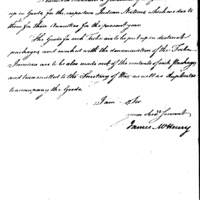 up in Goods for the respective Indian Nations which are due to
them for their Annuities for the present year.
The Goods for each Tribe are to be put up in distinct
packages and marked with the denomination of the Tribe
Invoices are to be also made out of the contents of each Package
and transmitted to the Secretary of War as well as duplicates
to accompany the Goods.
I am Sir
your obed. Servant
James McHenry